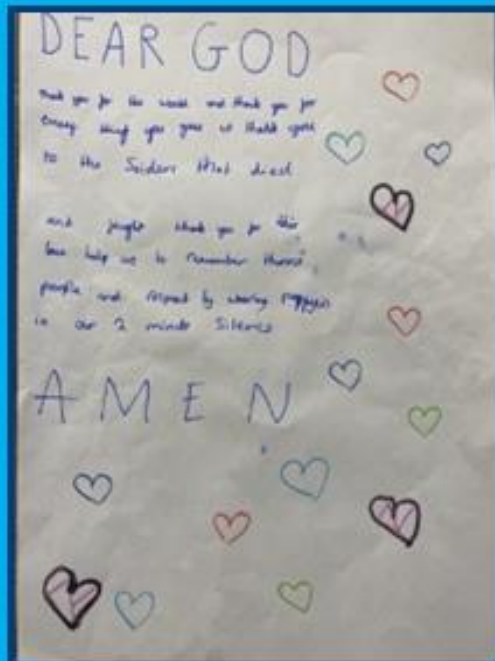 DEAR GOD
thank you for the world and thank you for
every thing you gave us thank you
to the Soiders that died
and fought thank you for this
love help us to remember
people and respect by wearing
in our 2 minute Silence
AMEN